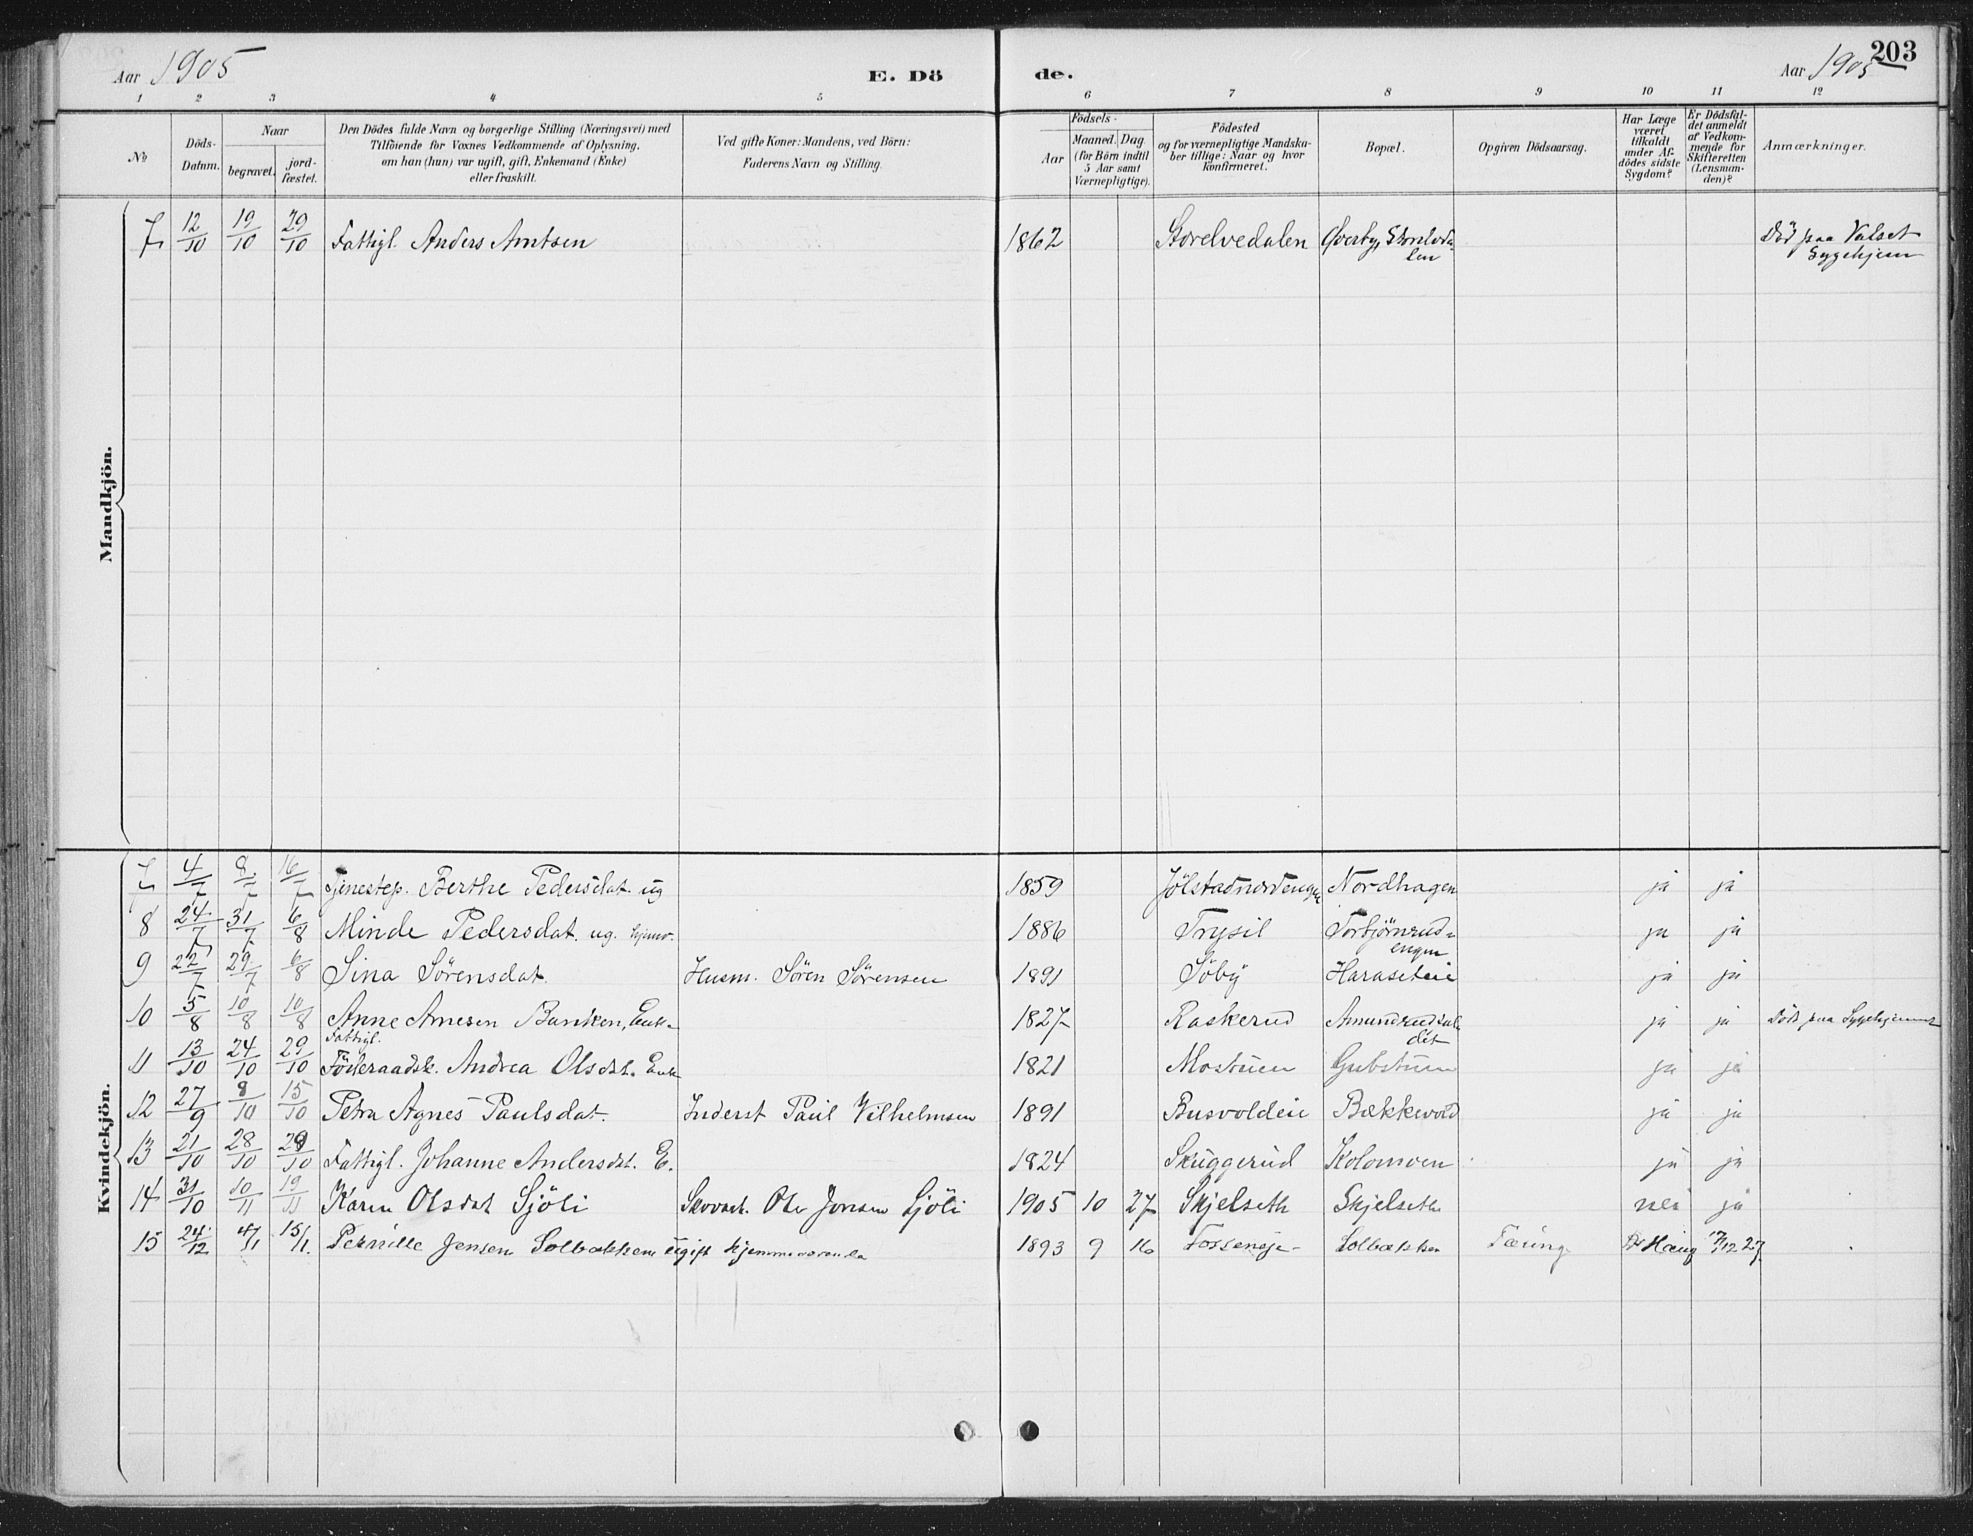 Aar 1905 E. Dö de. Aar 1905 203
1 2 3 4 5 6 7 8 9 10 11 12
No
Döds-Datum.
Naar
begravet.
jord-fæstet.
Den Dödes fulde Navn og borgerlige Stilling (Næringsvei) med
Tilföiende for Voxnes Vedkommende af Oplysning,
om han (hun) var ugift, gift, Enkemand (Enke)
eller fraskilt.
Ved gifte Koner: Mandens, ved Börn:
Faderens Navn og Stilling.
Födsels-
Aar
Maaned. Dag.
(for Börn indtil
5 Aar samt
Værnepligtige).
Födested
og for værnepligtige Mandska-
ber tillige: Naar og hvor
konfirmeret.
Bopæl.
Opgiven Dödsaarsag.
Har Læge
været
tilkaldt
under Af-
dödes sidste
Sygdom?
Er Dödsfal-
det anmeldt
af Vedkom-
mende for
Skifteretten
(Lensman-
den)?
Anmærkninger.
Mandkjön.
7 12/10 19/10 29/10 Fattigl. Anders Arntsen 1862 Storelvedalen Øverby, Storelveda
len
Död paa Valset
Sygehjem
Kvindekjön.
7 4/7 8/7 16/7 Tjenestep. Berthe Pedersdat. ug 1859 Nordhagen ja ja
8 24/7 31/7 6/8 Minde Pedersdat. ug. hjemv. 1886 Trysil Torbjørnrud-
engen ja ja
9 22/7 29/7 6/8 Sina Sørensdat. Husm. Sören Sørensen 1891 Söby Haraseteie ja ja
10 5/8 10/8 10/8 Anne Arnesen Banken, Enk- 1827 Raskerud Amundrudsal
det ja ja Död paa Sygehjemmet
Fattigl.
11 13/10 24/10 29/10 Föderaadsk. Andrea Olsdt. Enk 1821 Mostuen Gubstuen ja ja
12 27/9 8/10 15/10 Petra Agnes Paulsdat. Inderst Paul Vilhelmsen 1891 Busvoldeie Bækkevold ja ja
13 21/10 28/10 29/10 Fattigl. Johanne Andersdt. E. 1824 Skuggerud Kolomoen ja ja
14 31/10 10/11 19/11 Karen Olsdat Sjöli Skovarb. Ole Jonsen Sjöli 1905 10 27 Skjelseth Skjelseth nei ja
15 24/12 4/1 15/1. Pernille Jensen Solbakken ugift hjemmeværende 1893 9 16 Fosseneje Solbakken Tæring Dr Haug 27/12